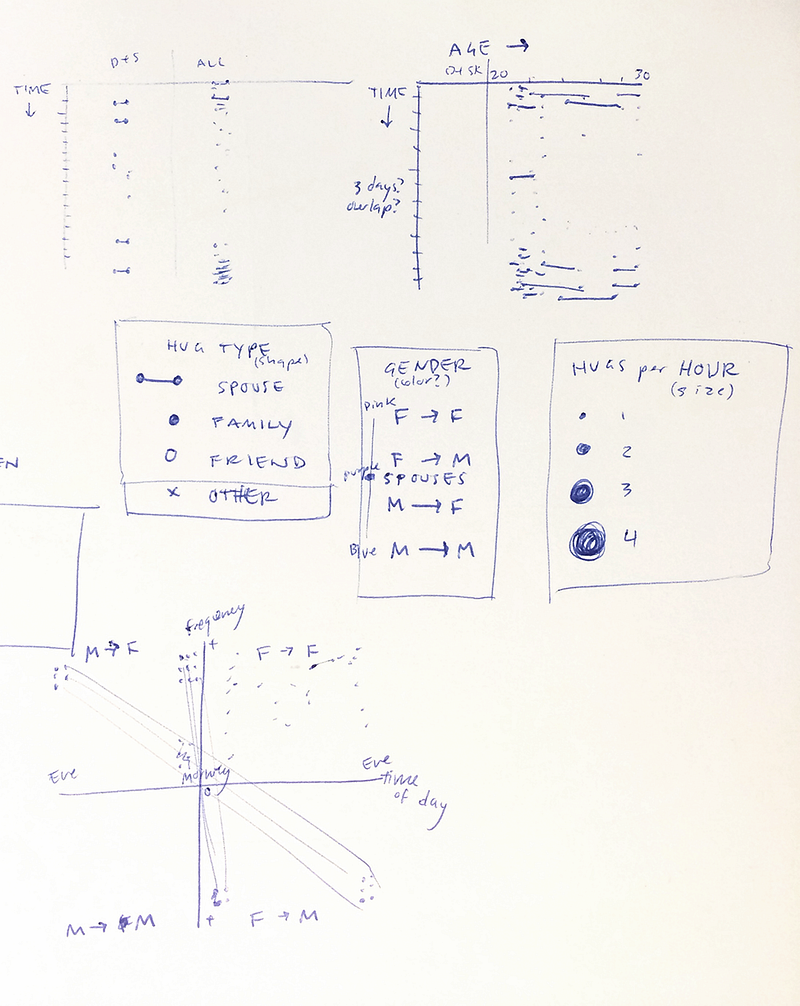 D+S
ALL
TIME
↓
AGE →
D+SK
20
30
TIME
↓
3 days?
overlap?
HUG TYPE
(shape)
SPOUSE
FAMILY
FRIEND
x OTHER
GENDER
(color?)
pink
F → F
F → M
purple
SPOUSES
M → F
Blue
M → M
HUGS per HOUR
(size)
1
2
3
4
EN
frequency
+
M → F
F → F
Eve
Morning
Eve
0
time
of day
+
M → M
F → M